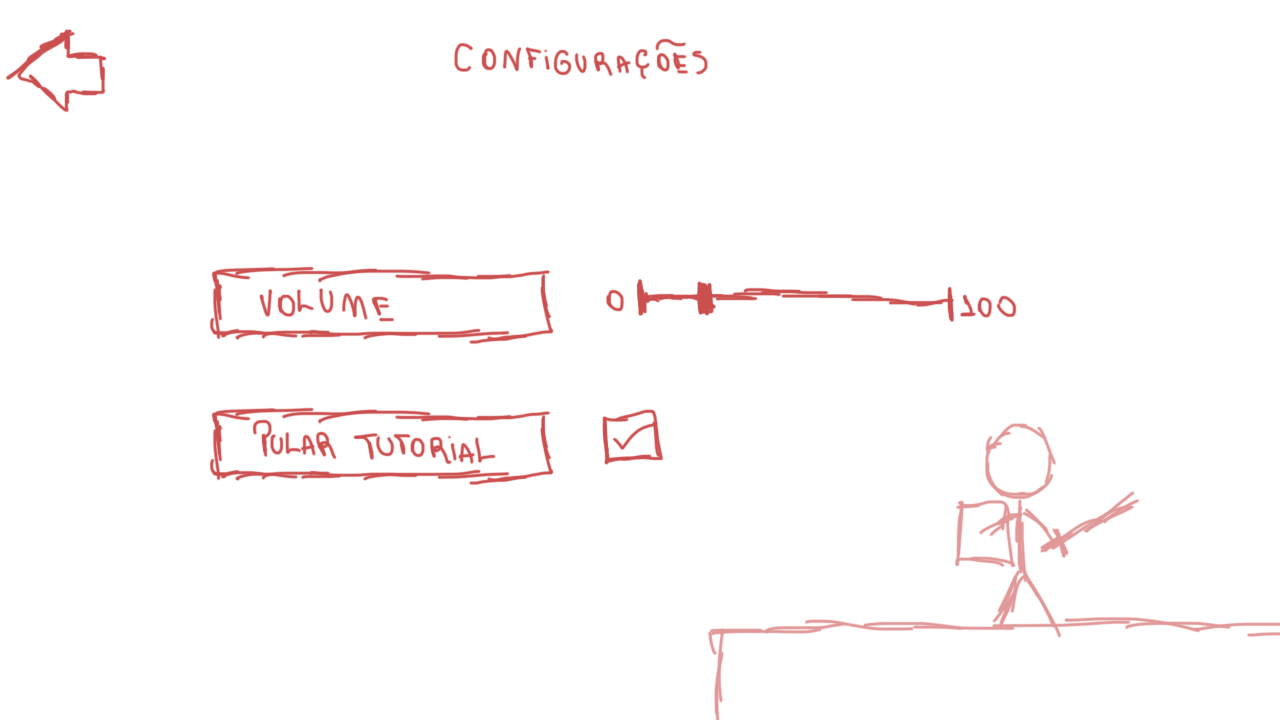 CONFIGURAÇÕES
VOLUME 0 100
PULAR TUTORIAL